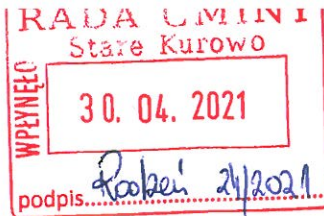 RADA GMINY
Stare Kurowo
WPŁYNĘŁO
30. 04. 2021
podpis.............. 24/2021